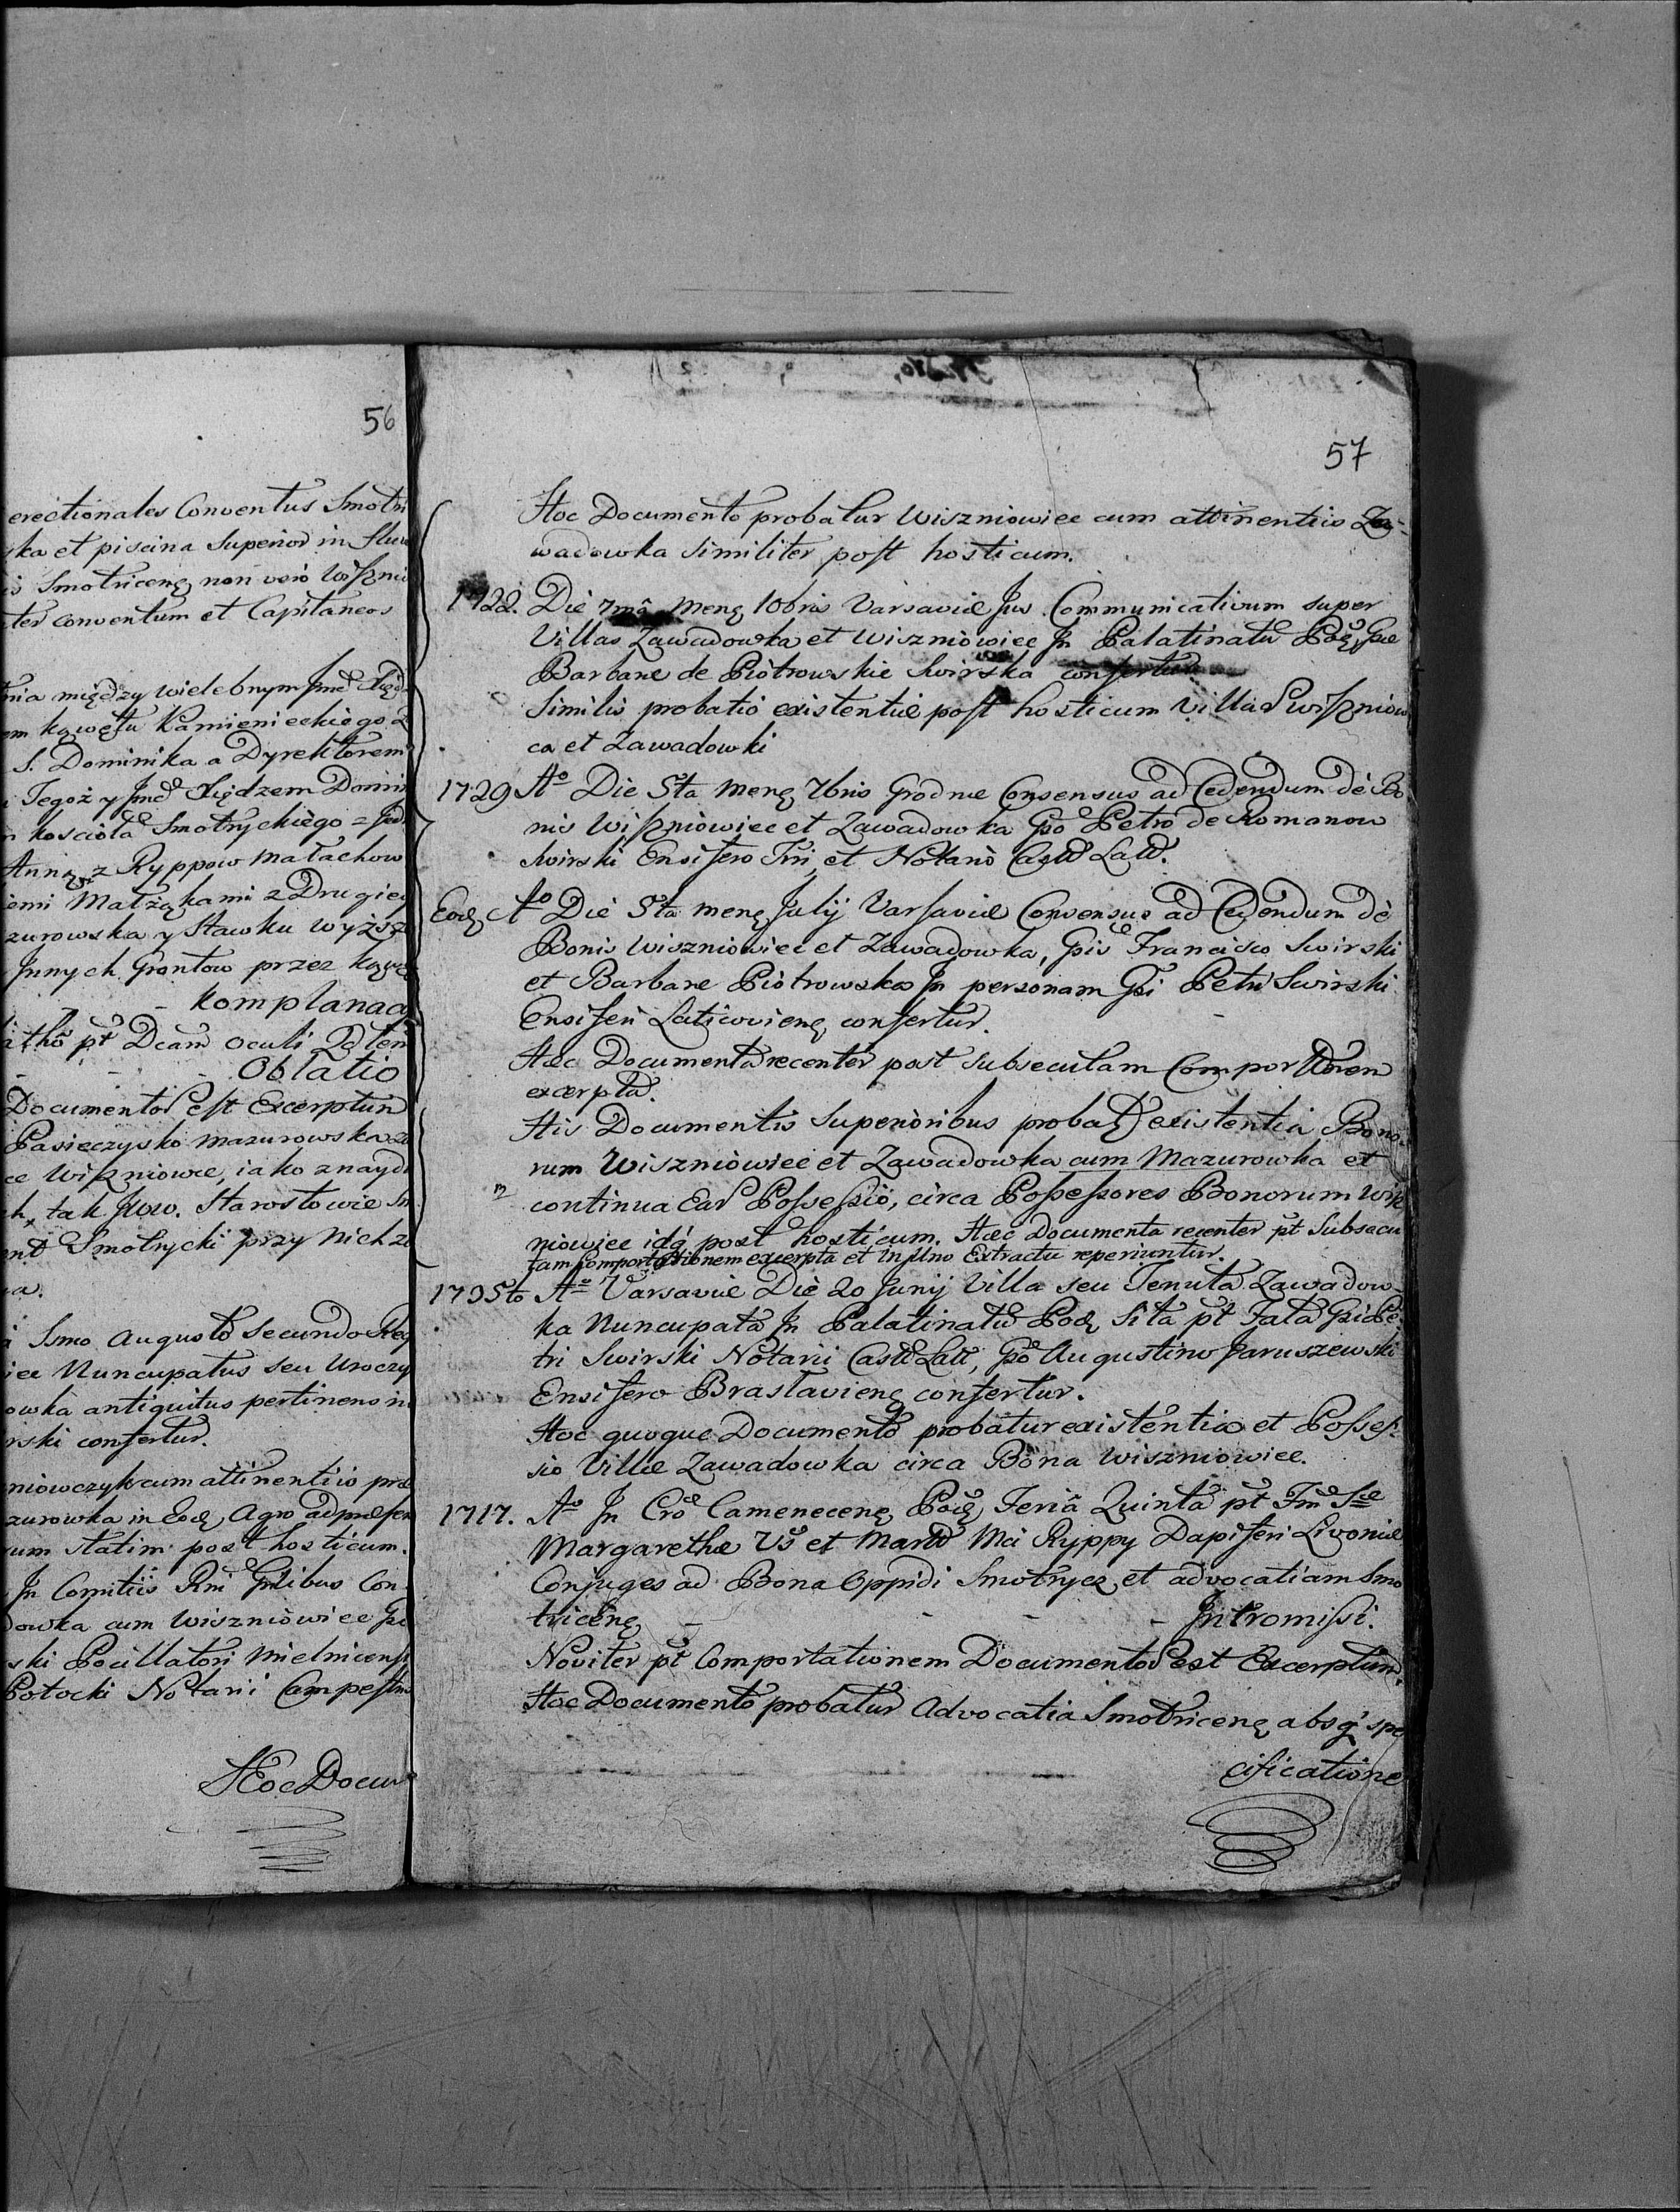 56
erectionales Conventus Smotri
ka et piscina Superior in fluv
is Smotricenę non vero Wiszniu
ter conventum et Capitaneos
nia między wielebnym Jmć Xiędz
em kgwętu Kamienieckiego Z
S. Dominika a Dyrektorem
i Tegoż y Jmć Xiędzem Domin
n kościoła Smotryckiego
Anną z Ryppow Małachow
emi Małżąkami z Drugiey
zurowska y Stawku wyższ
Jnnych Grontow przez
komplanac
pt Dcam oculi
Oblatio
Documento est Excerptum
Pasieczysko mazurowska
ce Wiszniowce, iako znayd
h, tak Jww. Starostowie Sm
Smotrycki przy Nich
a.
Ssmo Augusto Secundo Reg
iec Nuncupatus seu Uroczy
owka antiquitus pertinens in
rski confertur.
niowczyk cum attinentiis præ
zurowka in Eodę Agro ad præsen
rum statim post hosticum.
Jn Comitiis Rni Gnlibus Con
dowka cum Wiszniowiec
ski Pocillatori Mielnicensi
Potocki Notarii Campestris
Hoc Docum
57
Hoc Documento probatur Wiszniowiec cum attinentiis Za-
wadowka similiter post hosticum.
1722. Die 7mâ Menę 10bris Varsaviæ Jus Communicativum super
Villas Zawadowka et Wiszniowiec Jn Palatinatu Podę, Gsæ
Barbaræ de Piotrowskie Swirska confertur
Similis probatio existentiæ post hosticum Villar Wiszniow
ca et Zawadowki
1729 Aº Die 5ta Menę 7bris Grodnæ Consensus ad Cedendum de Bo
nis Wiszniowiec et Zawadowka Gso Petro de Romanow
Swirski Ensifero Trri, et Notario Castr Latt.
Eodę Aº Die 5ta menę Julij Varsaviæ Consensus ad Cedendum de
Bonis Wiszniowiec et Zawadowka, Gsis Francisco Swirski
et Barbaræ Piotrowska Jn personam Gsi Petri Swirski
Ensiferi Laticovienę confertur.
Hæc Documenta recenter post subsecutam Comporttionen
excerpta.
His Documentis Superioribus probatur existentia Bono-
rum Wiszniowiec et Zawadowka cum Mazurowka et
continua Ear Possessio, circa Possessores Bonorum Wisz
niowiec idq̃ post hosticum. Hæc Documenta recenter pt Subsecu
tam Comportationem excerpta et in Uno Extractu reperiuntur.
1735to Aº Varsaviæ Die 20 Junij Villa seu Tenuta Zawadow-
ka Nuncupata Jn Palatinatu Podę Sita pt Fata Gsi Pe-
tri Swirski Notarii Castr Latt, Gso Augustino Jaruszewski
Ensifero Braslavienę confertur.
Hoc quoque Documento probatur existentia et Posses-
sio Villæ Zawadowka circa Bona Wiszniowiec.
1717. Aº Jn Cro Camenecenę Podę, Feria Quinta pt Fm Stæ
Margarethæ Vs et Mart Mci Ryppy Dapiferi Livoniæ
Conjuges ad Bona Oppidi Smotrycz, et advocatiam Smo
tricenę - - - - Jntromissi.
Noviter pt Comportationem Documentor est Excerptum.
Hoc Documento probatur Advocatia Smotricenę absq̃ spe
cificatione